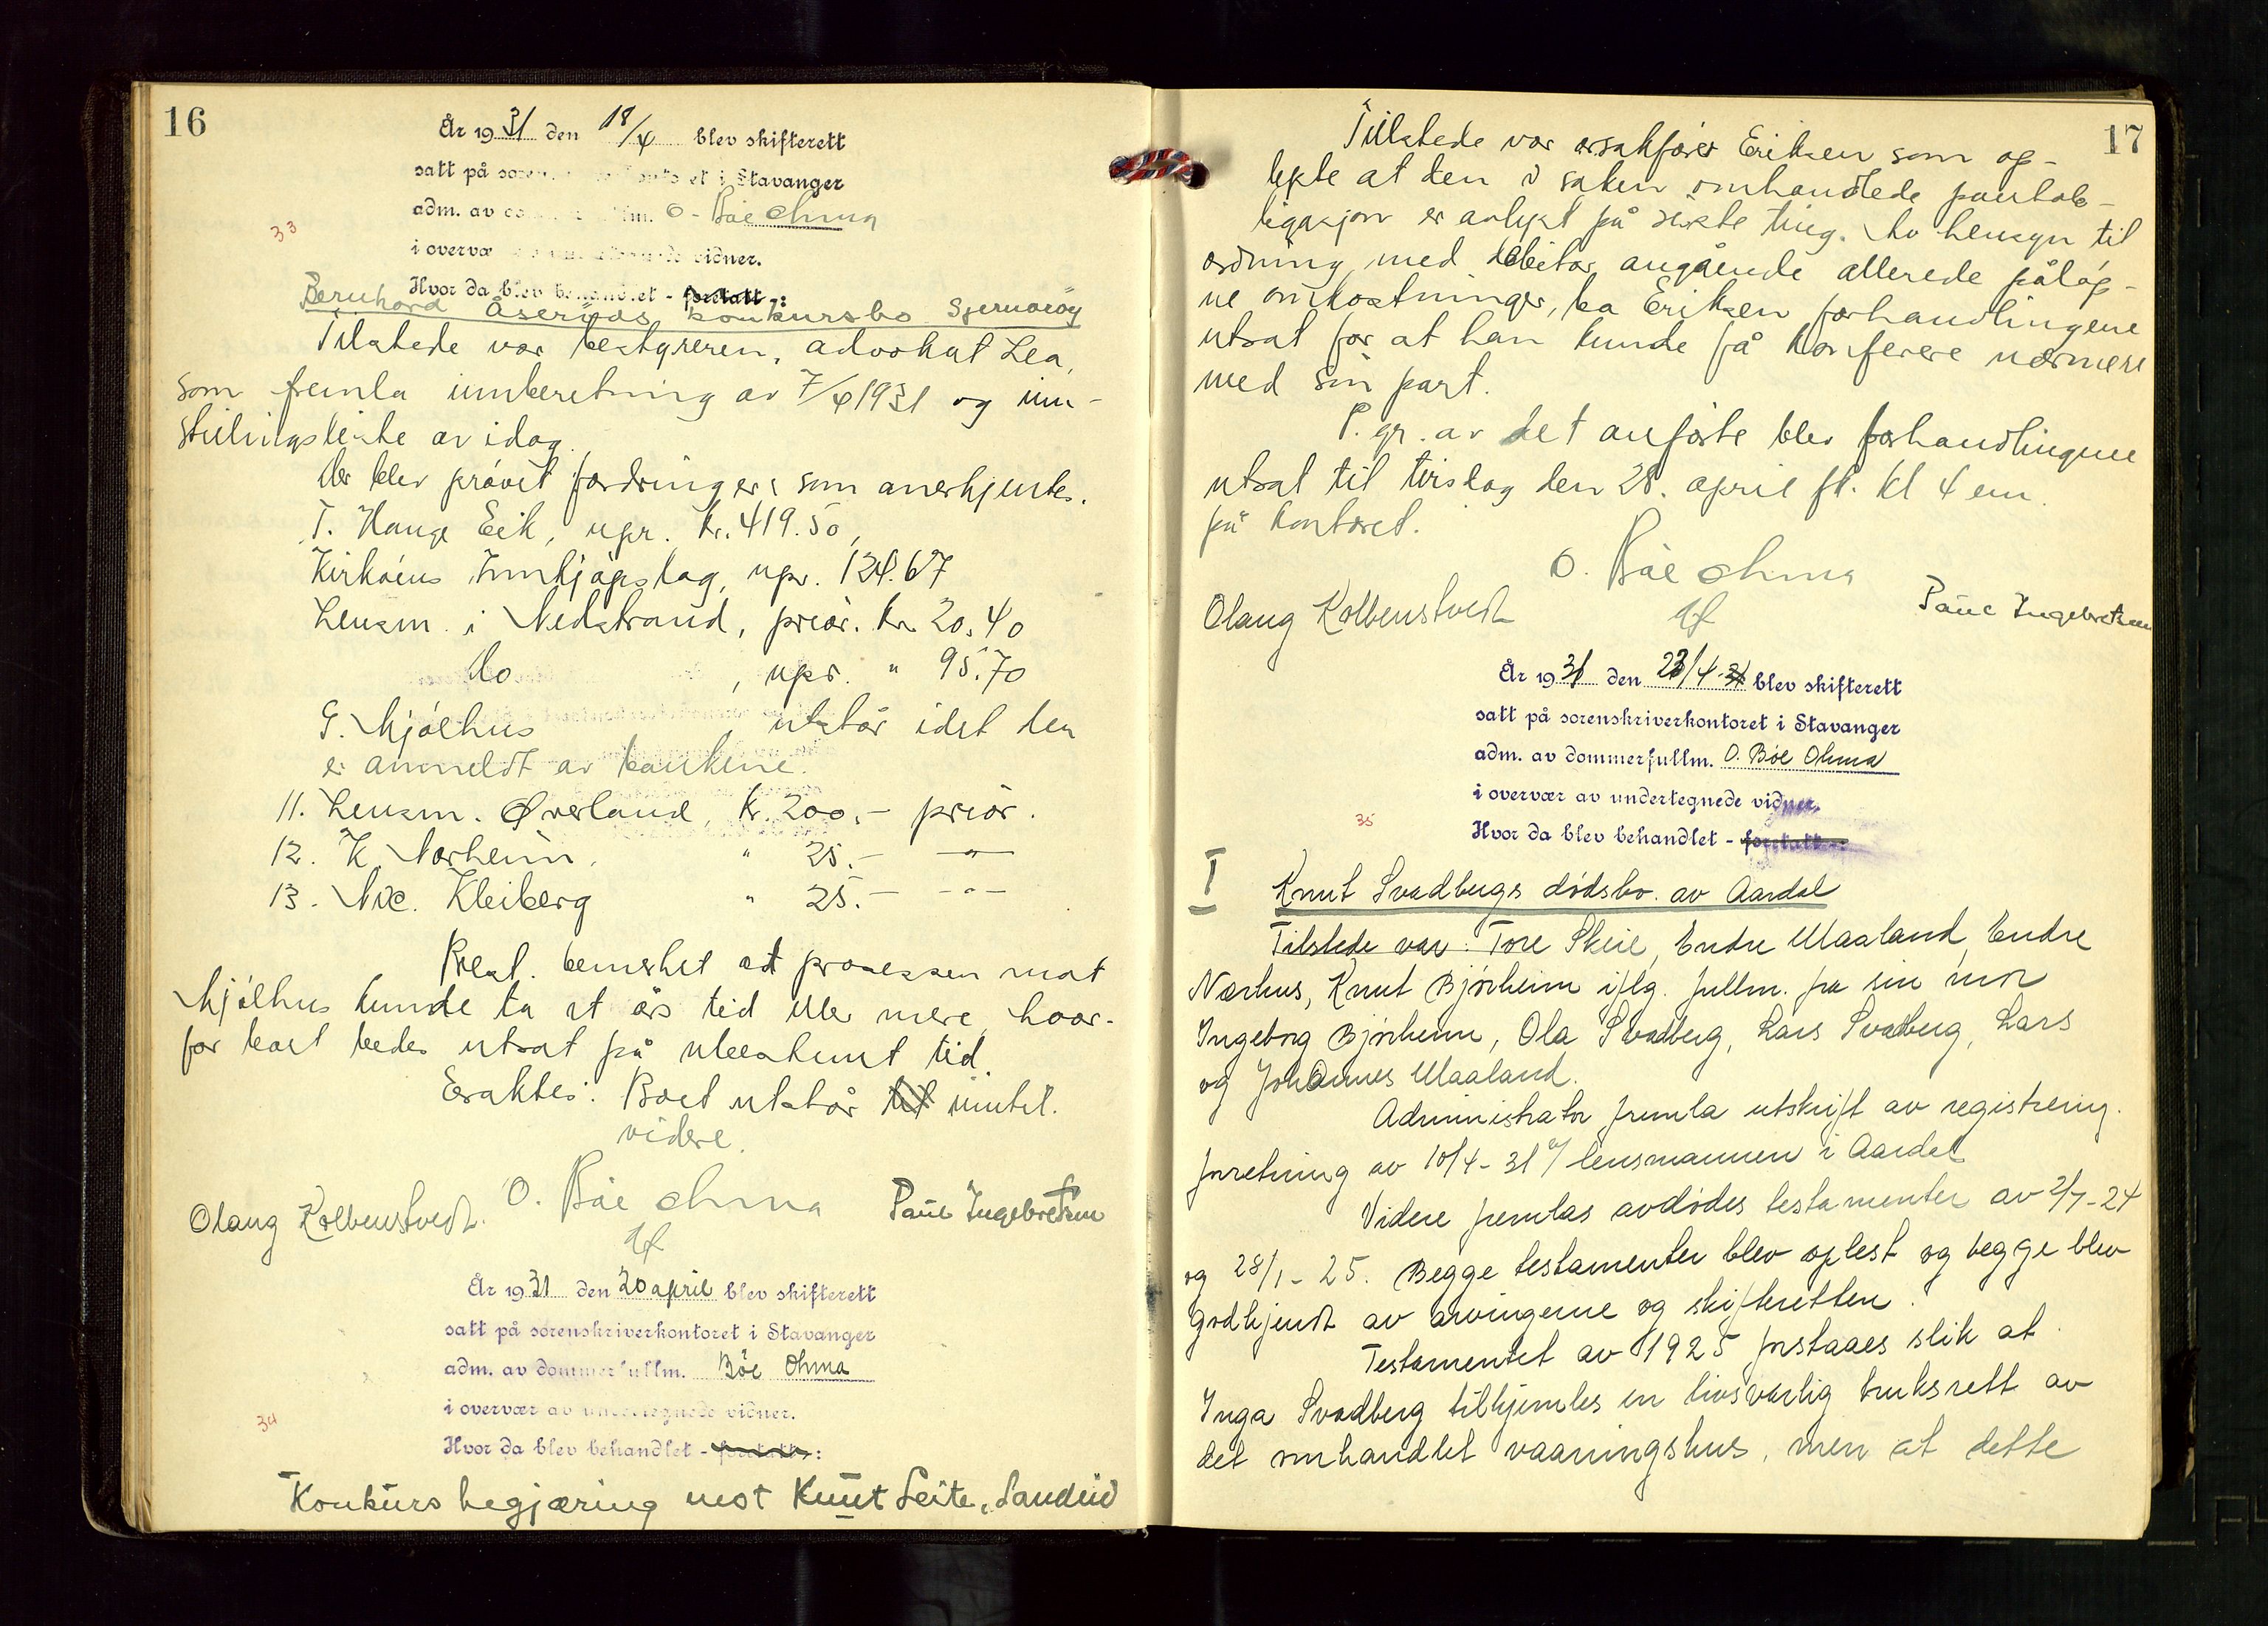 16
År 1931 den 18/4 blev skifterett
satt på soren et i Stavanger
adm. av O. Bøe Ohma
33
i overvæ vidner.
Hvor da blev behandlet - foretatt -:
Bernhard Åserøds konkursbo Sjernarøy
Tilstede var bestyreren, advokat Lea,
som fremla innberetning av 7/4 1931 og inn-
stillingsliste av idag.
Der blev prøvet fordringer som anerkjentes.
T. Hauge Eik, upr. kr. 419.50,
Kirkøens Innkjøpslag, upr. 124.67
Lensm. i Nedstrand, prior. kr. 20.40
do , upr. " 95.70
G. Mjølhus , utstår idet den
er anmeldt av bankene.
11. Lensm. Øverland, kr. 200.- prior.
12. K. Norheim, " 25.- -"-
13. Nic. Kleiberg " 25.- -"-
Best. bemerket at prosessen mot
Mjølhus kunde ta et års tid eller mere, hvor-
for boet bedes utsat på ubestemt tid.
Eraktes: Boet utstår til inntil.
videre.
O. Bøe Ohma
Olaug Kolbenstvedt. Paul Ingebretsen
År 1931 den 20 april blev skifterett
satt på sorenskriverkontoret i Stavanger
adm. av dommerfullm. Bøe Ohma
i overvær av undertegnede vidner.
34
Hvor da blev behandlet - foretatt -:
Konkursbegjæring mot Knut Leite, Sandeid
17
Tilstede var o.r.sakfører Eriksen som op-
lyste at den i saken omhandlede pantob-
ligasjon er avlyst på siste ting. Av hensyn til
ordning med debitor angående allerede påløp-
ne omkostninger, ba Eriksen forhandlingene
utsat for at han kunde få konferere nærmere
med sin part.
P. gr. av det anførte blev forhandlingene
utsat til tirsdag den 28. april ft. kl 4 em.
på kontoret.
O. Bøe Ohma
Olaug Kolbenstvedt Paul Ingebretsen
År 1931 den 23/4-31 blev skifterett
satt på sorenskriverkontoret i Stavanger
adm. av dommerfullm. O. Bøe Ohma
i overvær av undertegnede vidner.
35
Hvor da blev behandlet - foretatt -:
I
Knut Svadbergs dødsbo. av Aardal
Tilstede var: Tore Skeie, Endre Maaland, Endre
Nærhus, Knut Bjørheim iflg. fullm. fra sin mor
Ingeborg Bjørheim, Ola Svadberg, Lars Svadberg, Lars
og Johannes Maaland.
Administrator fremla utskrift av registrering.
forretning av 10/4-31 v/ lensmannen i Aardal
Videre fremlas avdødes testamenter av 2/7-24
og 28/1-25. Begge testamenter blev oplest og begge blev
godkjendt av arvingerne og skifteretten.
Testamentet av 1925 forstaaes slik at
Inga Svadberg tilkjennes en livsvarig bruksrett av
det omhandlet vaaningshus, men at dette